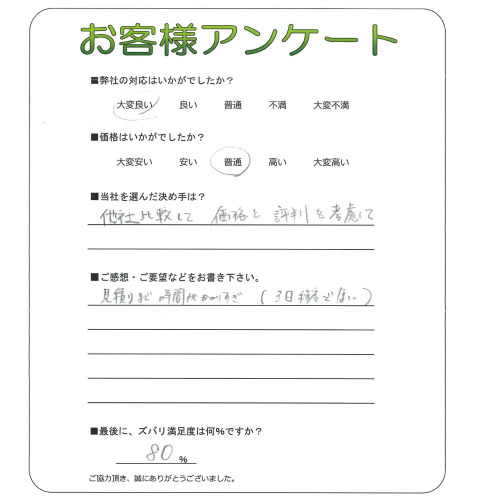 お客様アンケート
■弊社の対応はいかがでしたか？
大変良い 良い 普通 不満 大変不満
■価格はいかがでしたか？
大変安い 安い 普通 高い 大変高い
■当社を選んだ決め手は？
他社比較して 価格と評判を考慮して
■ご感想・ご要望などをお書き下さい。
見積りまで時間がかかりすぎ（3日程度でほしい）
■最後に、ズバリ満足度は何%ですか？
80 %
ご協力頂き、誠にありがとうございました。